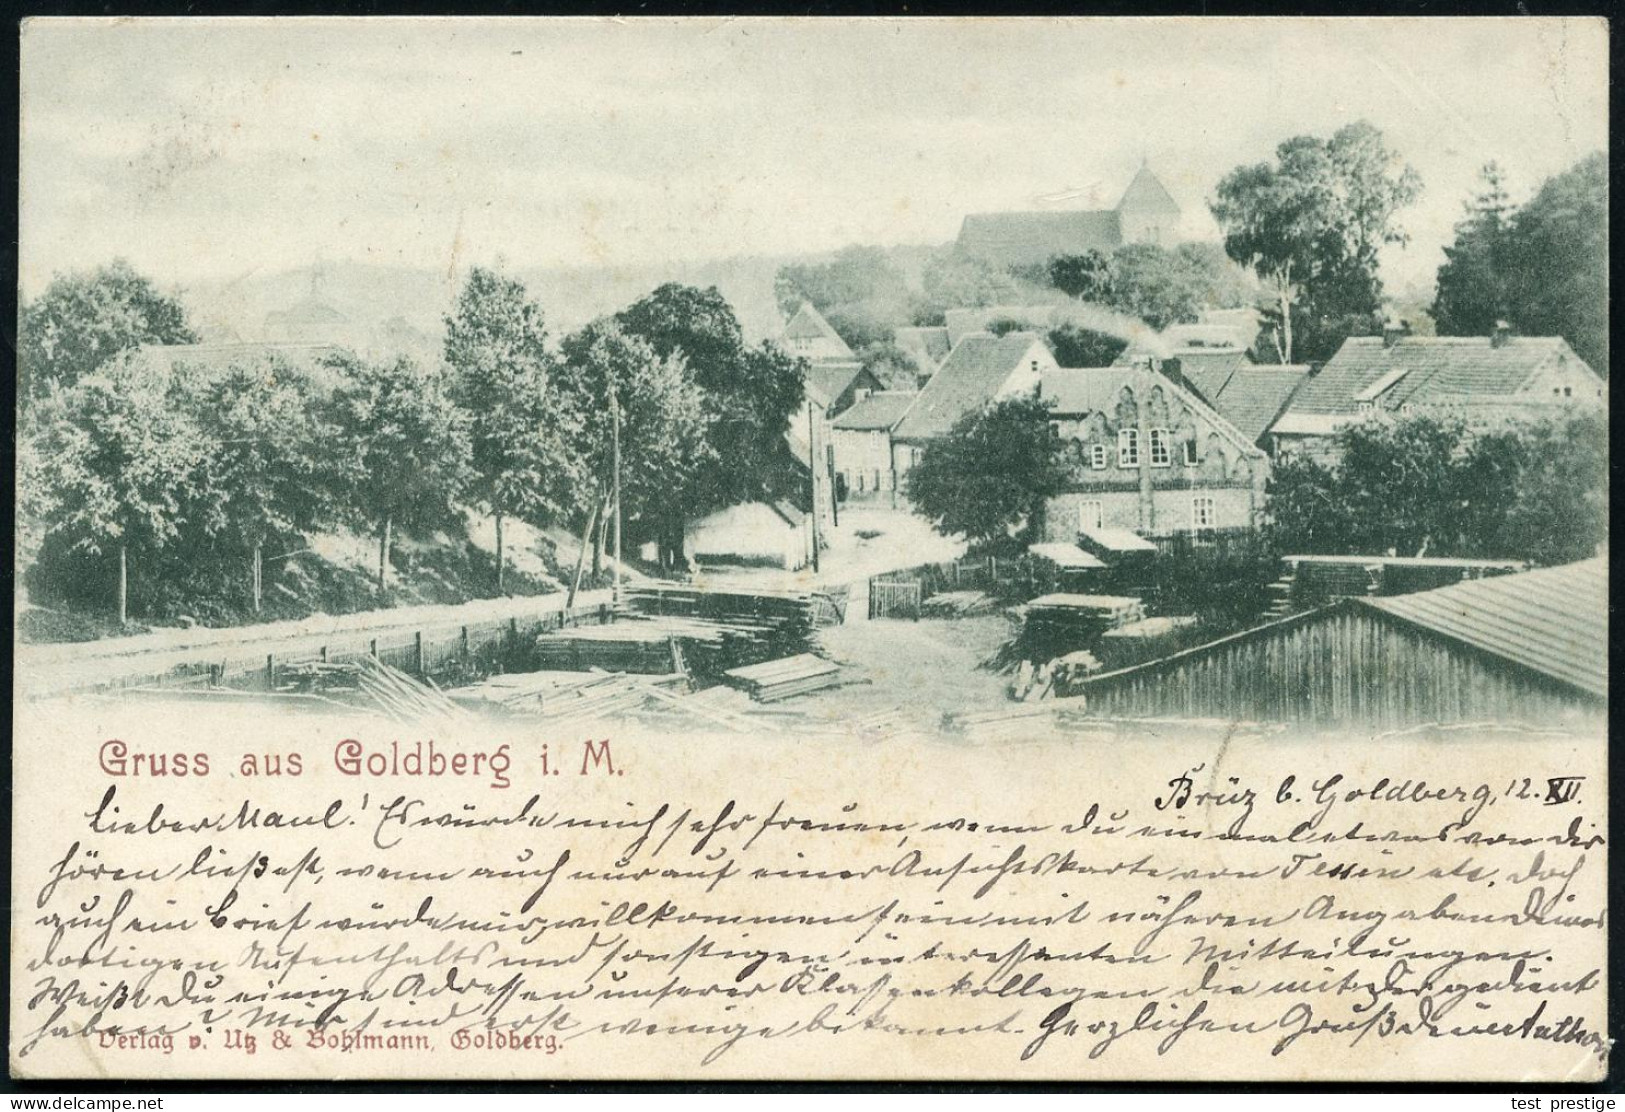 Gruss aus Goldberg i. M.
Brüz b. Goldberg, 12. XII.
Lieber Maul! Es würde mich sehr freuen, wenn Du einmal etwas von dir
hören ließest, wenn auch nur auf einer Ansichtskarte von Tessin etc. Doch
auch ein Brief würde mir willkommen sein mit näheren Angaben Deines
dortigen Aufenthalts und sonstigen interessanten Mitteilungen.
Weißt Du einige Adressen unserer Klassenkollegen die mit Dir gedient
haben? Mir sind erst wenige bekannt. Herzlichen Gruß Dein
Verlag v. Utz & Bohlmann, Goldberg.
test prestige